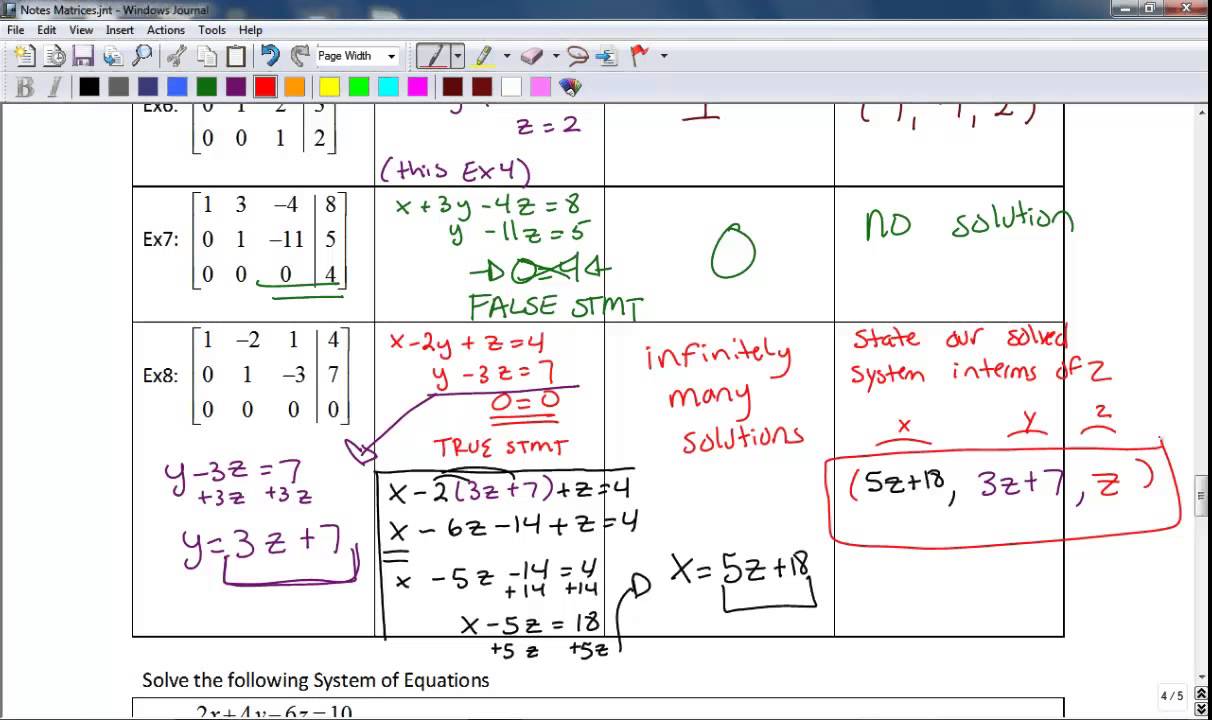 Notes Matrices.jnt - Windows Journal
File Edit View Insert Actions Tools Help
Page Width
B I
Ex6:
0 1 2 3
0 0 1 2
z = 2
1
(this Ex4)
Ex7:
1 3 −4 8
0 1 −11 5
0 0 0 4
x + 3y - 4z = 8
y - 11z = 5
0=4
FALSE STMT
0
no solution
Ex8:
1 −2 1 4
0 1 −3 7
0 0 0 0
x - 2y + z = 4
y - 3z = 7
0 = 0
TRUE STMT
infinitely
many
solutions
State our solved
system interms of z
x y z
(5z+18, 3z+7, z)
y - 3z = 7
+3z +3z
y = 3z + 7
x - 2(3z+7) + z = 4
x - 6z - 14 + z = 4
x - 5z - 14 = 4
+14 +14
x - 5z = 18
+5z +5z
x = 5z + 18
Solve the following System of Equations
2x+4y−6z=10
4 / 5